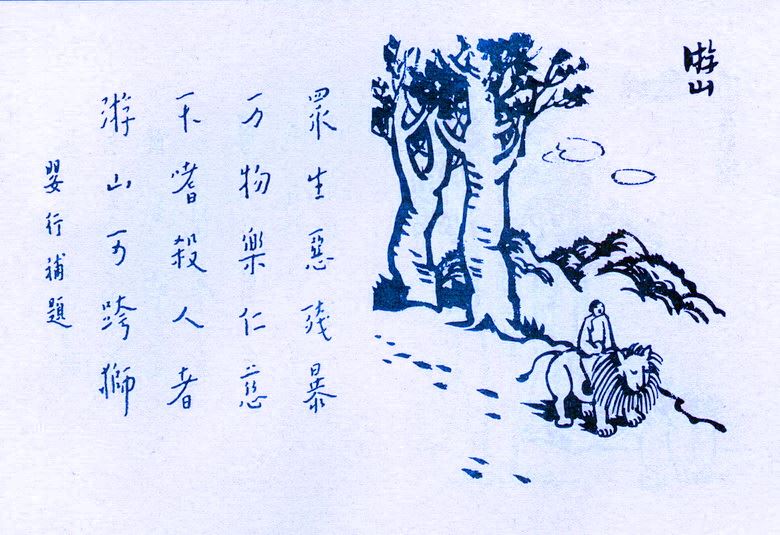 游山
眾生惡殘暴
万物樂仁慈
不嗜殺人者
游山可跨獅
嬰行補題